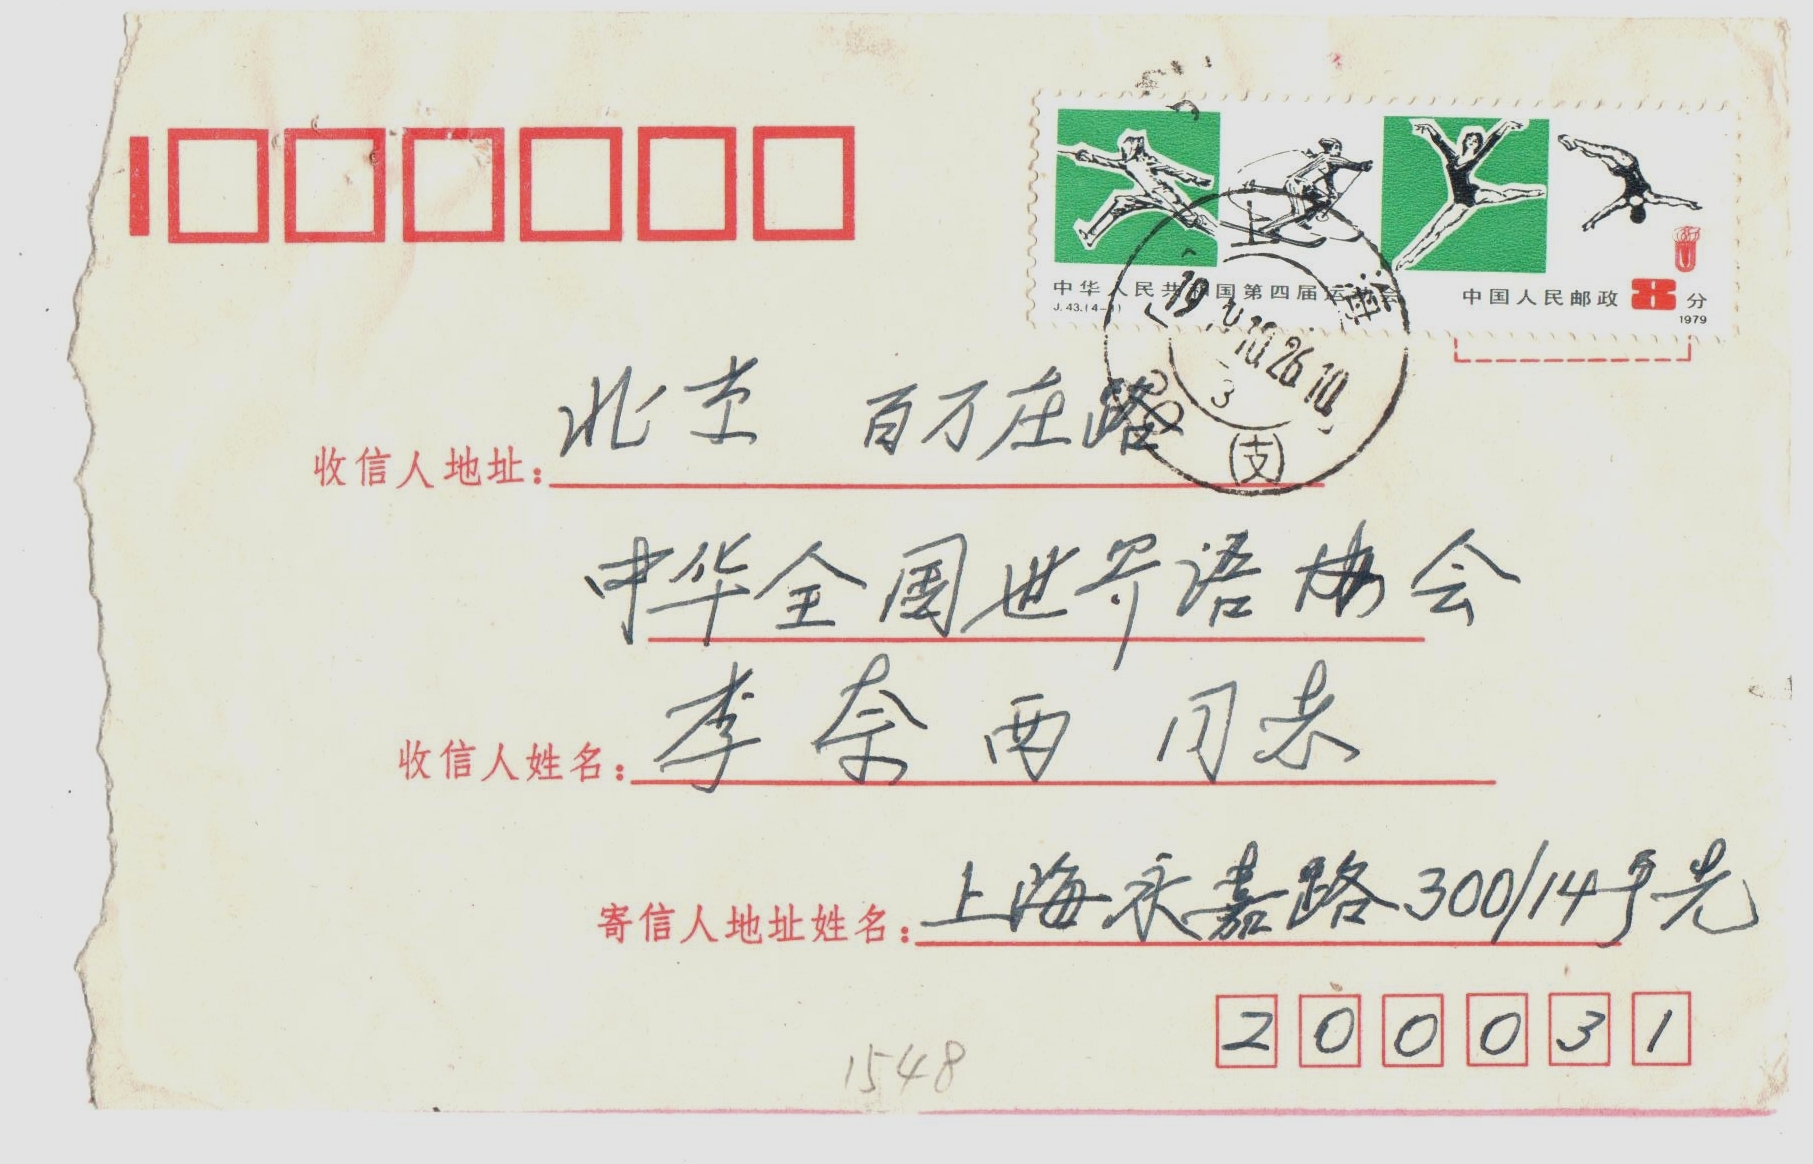 中华人民共和国第四届运动会
J.43.(4-1)
中国人民邮政 8 分
1979
上海
10.26.10
3
(支)
收信人地址: 北京 百万庄路
中华全国世界语协会
收信人姓名: 李奈西 同志
寄信人地址姓名: 上海永嘉路300/14号光
200031
1548